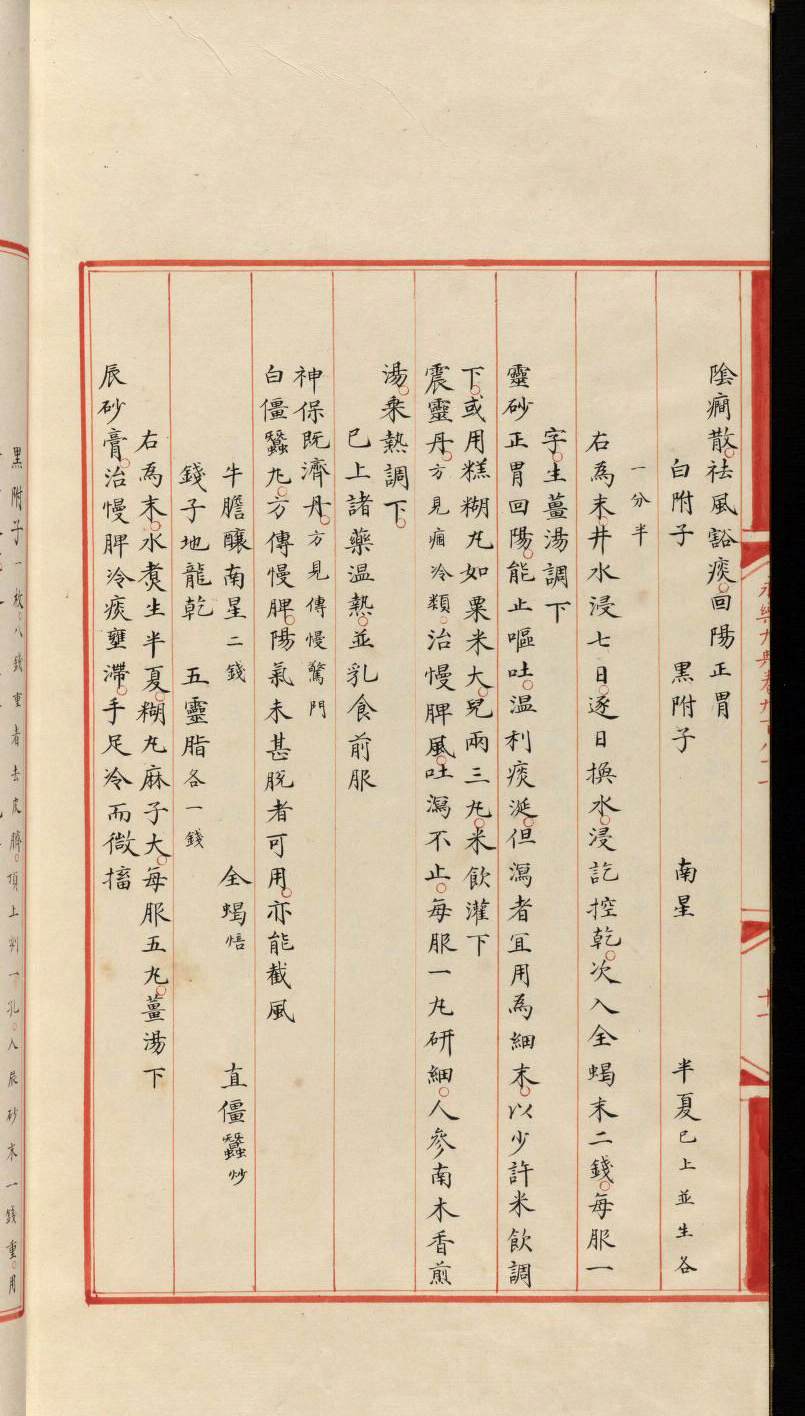 陰癎散祛風豁痰回陽正胃
白附子 黑附子 南星 半夏已上並生各
一分半
右為末井水浸七日逐日換水浸訖控乾次入全蝎末二錢每服一
字生薑湯調下
靈砂正胃回陽能止嘔吐温利痰涎但瀉者宜用為細末以少許米飲調
下或用糕糊丸如粟米大兒兩三丸米飲灌下
震靈丹方見痼冷類治慢脾風吐瀉不止每服一丸研細人參南木香煎
湯乘熱調下
已上諸藥温熱並乳食前服
神保既濟丹方見傳慢驚門
白僵蠶丸方傳慢脾陽氣未甚脫者可用亦能截風
牛膽釀南星二錢 全蝎焙 直僵蠶炒
錢子地龍乾 五靈脂各一錢
右為末水煑生半夏糊丸麻子大每服五丸薑湯下
辰砂膏治慢脾冷痰壅滯手足冷而微搐
黑附子一枚八錢重者去皮臍頂上刳一孔入辰砂末一錢重用